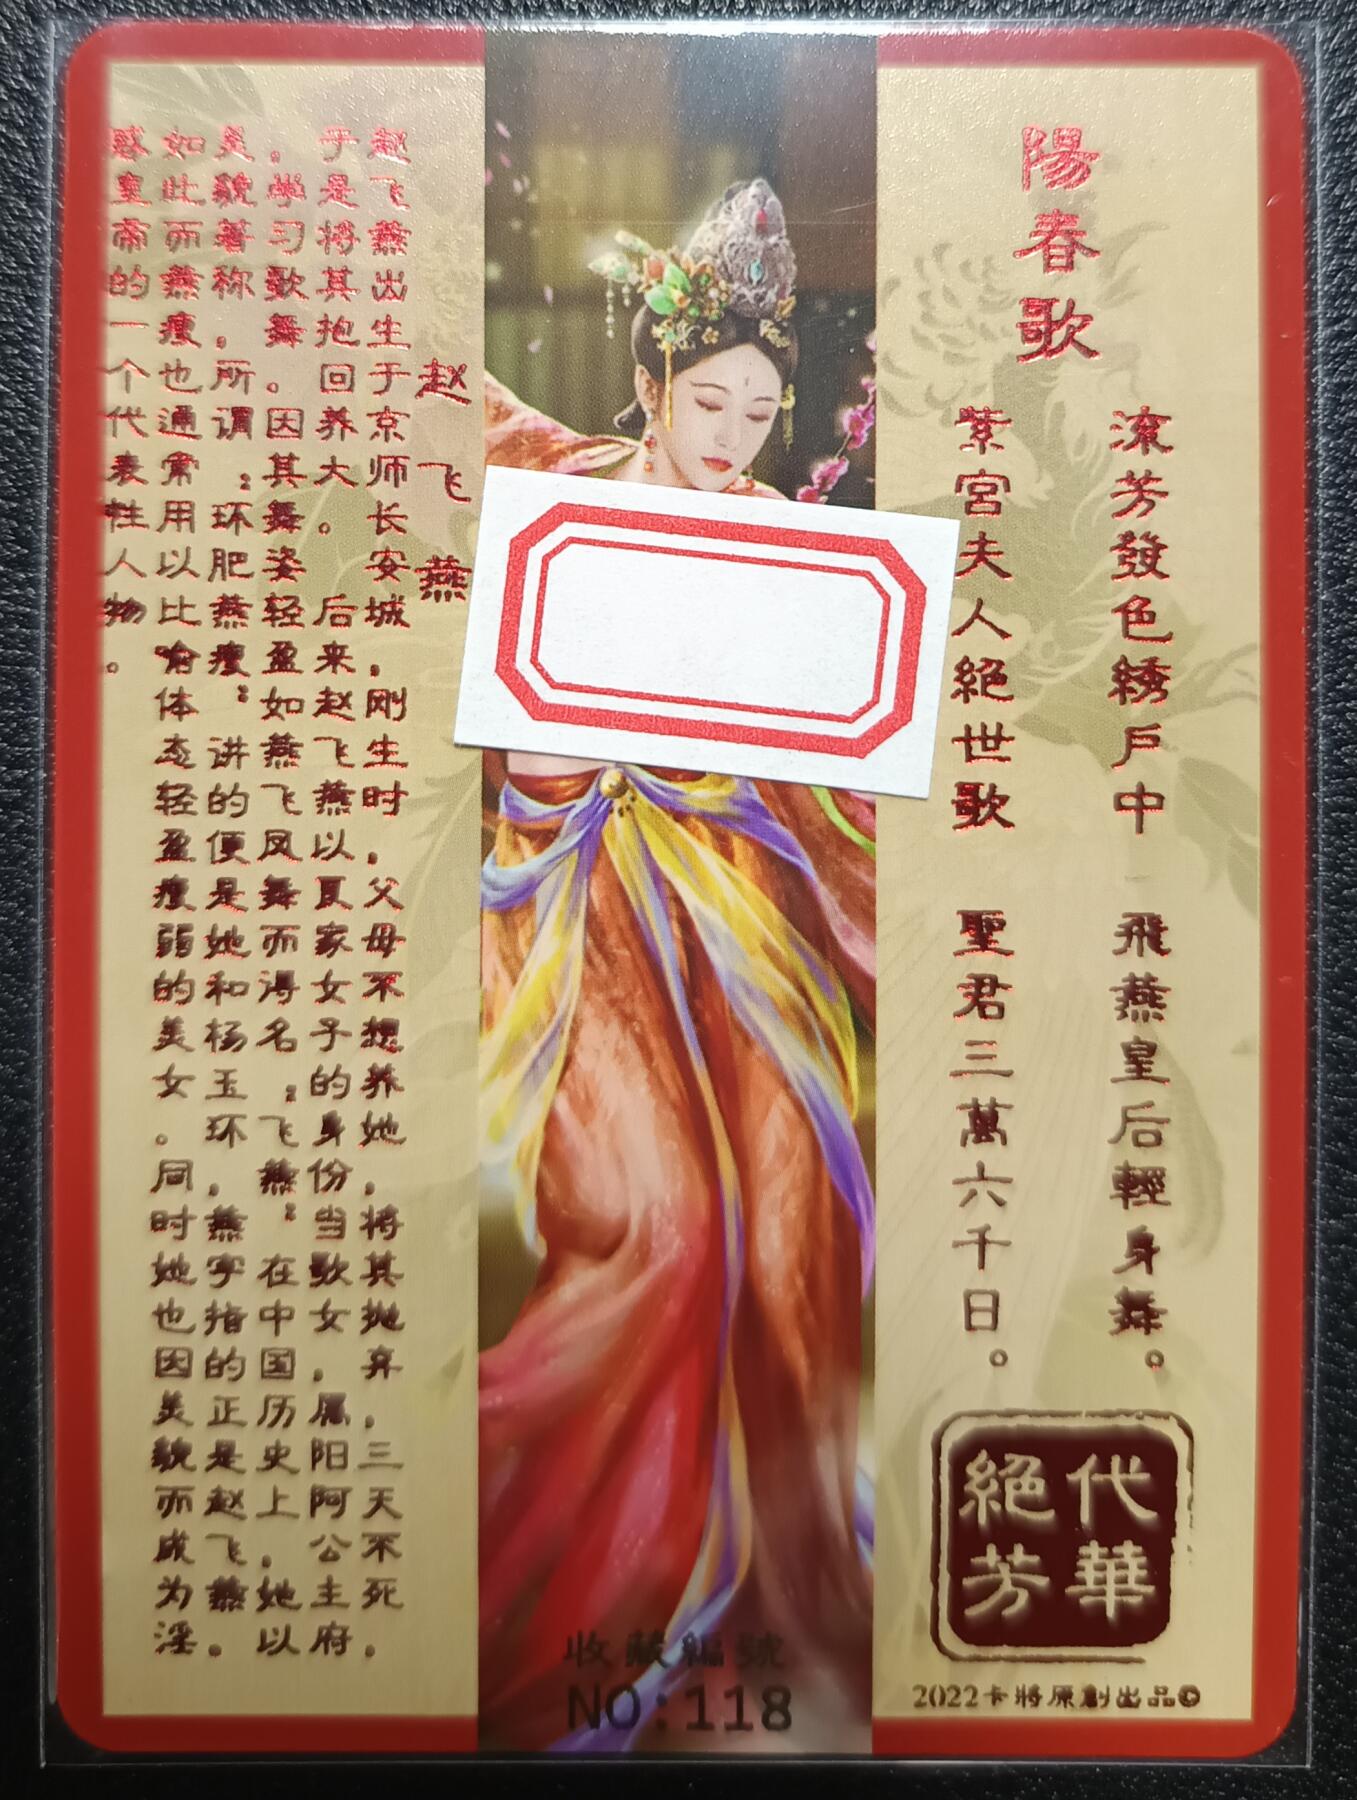 陽春歌
流芳發色綉戶中 飛燕皇后輕身舞。
紫宮夫人絕世歌 聖君三萬六千日。
代華
絕芳
2022卡將原創出品©
收藏編號
NO:118
赵飞燕
赵飞燕出生于京师长安城，刚生时，父母不想养她，将其抛弃，三天不死，
于是将其抱回养大。 后来赵飞燕以良家女子的身份，当歌女，属阳阿公主府
，学习歌舞。因其舞姿轻盈如燕飞凤舞而得名“飞燕” 在中国历史上，她以
美貌著称，所谓“环肥燕瘦” 讲的便是她和杨玉环，燕字指的正是赵飞燕。
如此而燕瘦也通常用以比喻体态轻盈瘦弱的美女。同时她也因美貌而成为淫
惑皇帝的一个代表性人物。